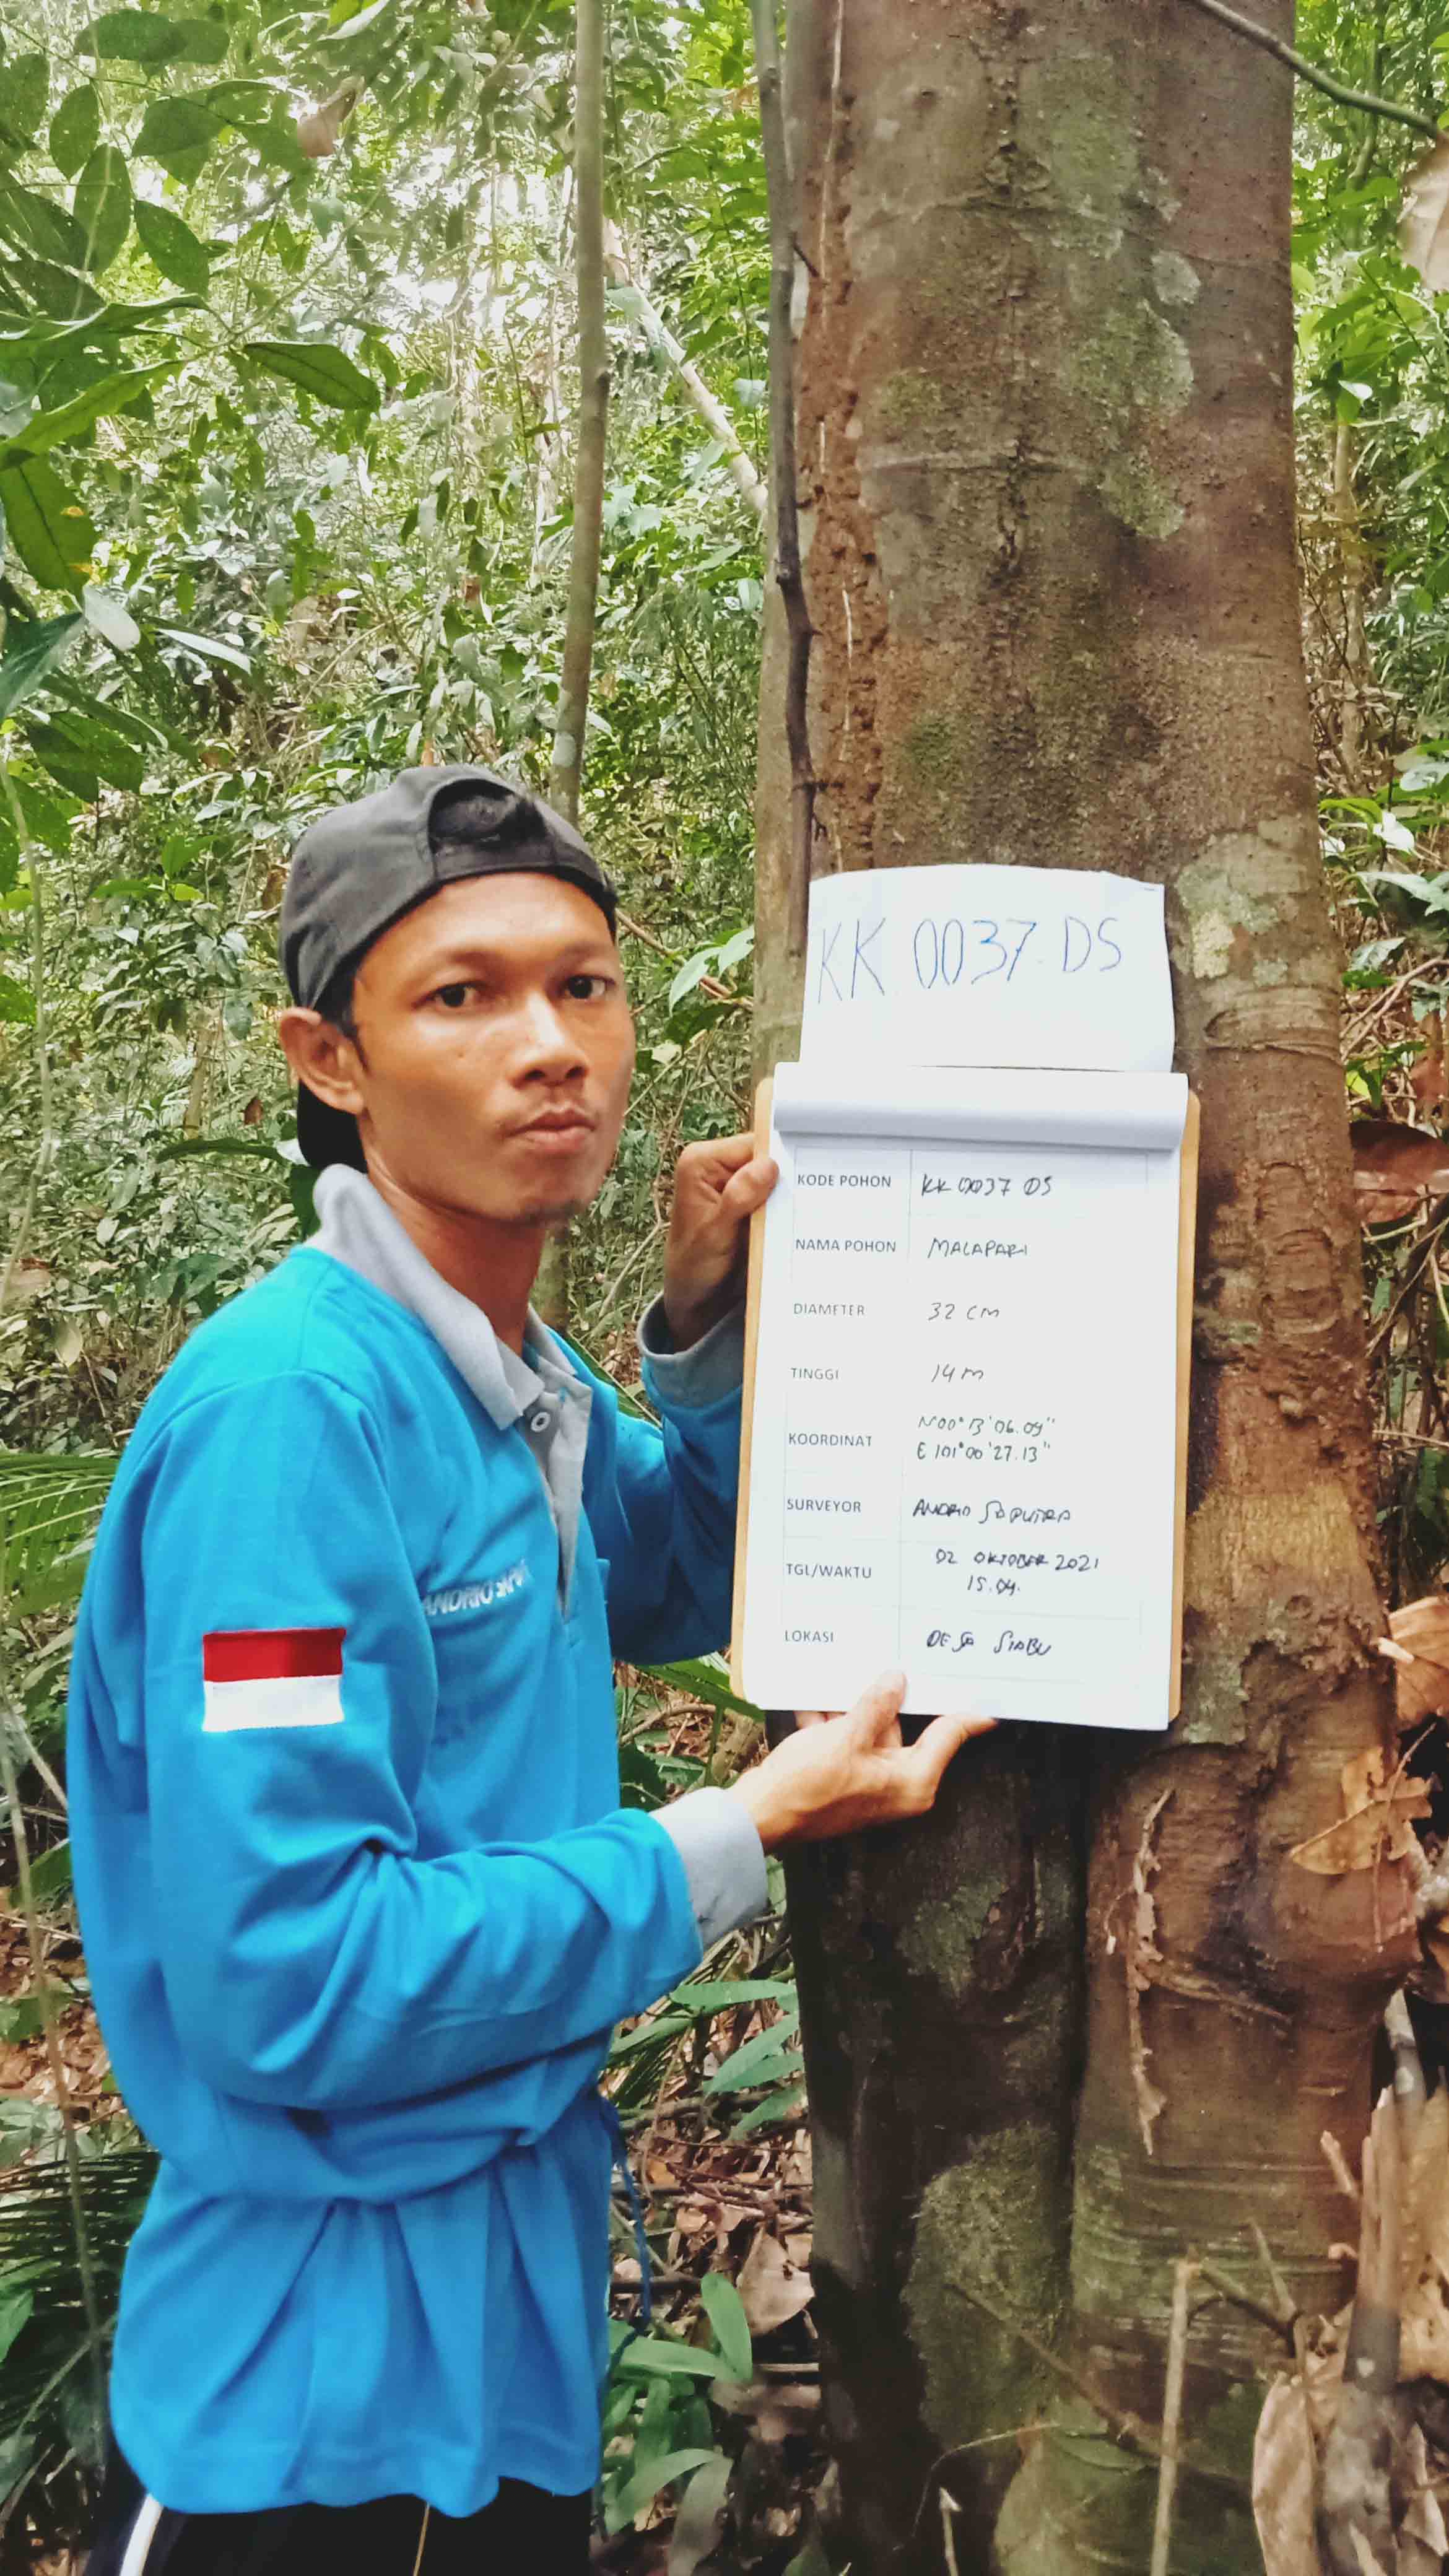 KK 0037 DS
KODE POHON KK 0037 DS
NAMA POHON MALAPARI
DIAMETER 32 CM
TINGGI 14 M
KOORDINAT N 00° 13' 06.09"
E 101° 00' 27.13"
SURVEYOR ANDRIO SAPUTRA
TGL/WAKTU 02 OKTOBER 2021
15.04.
LOKASI DESA SIABU
ANDRIO